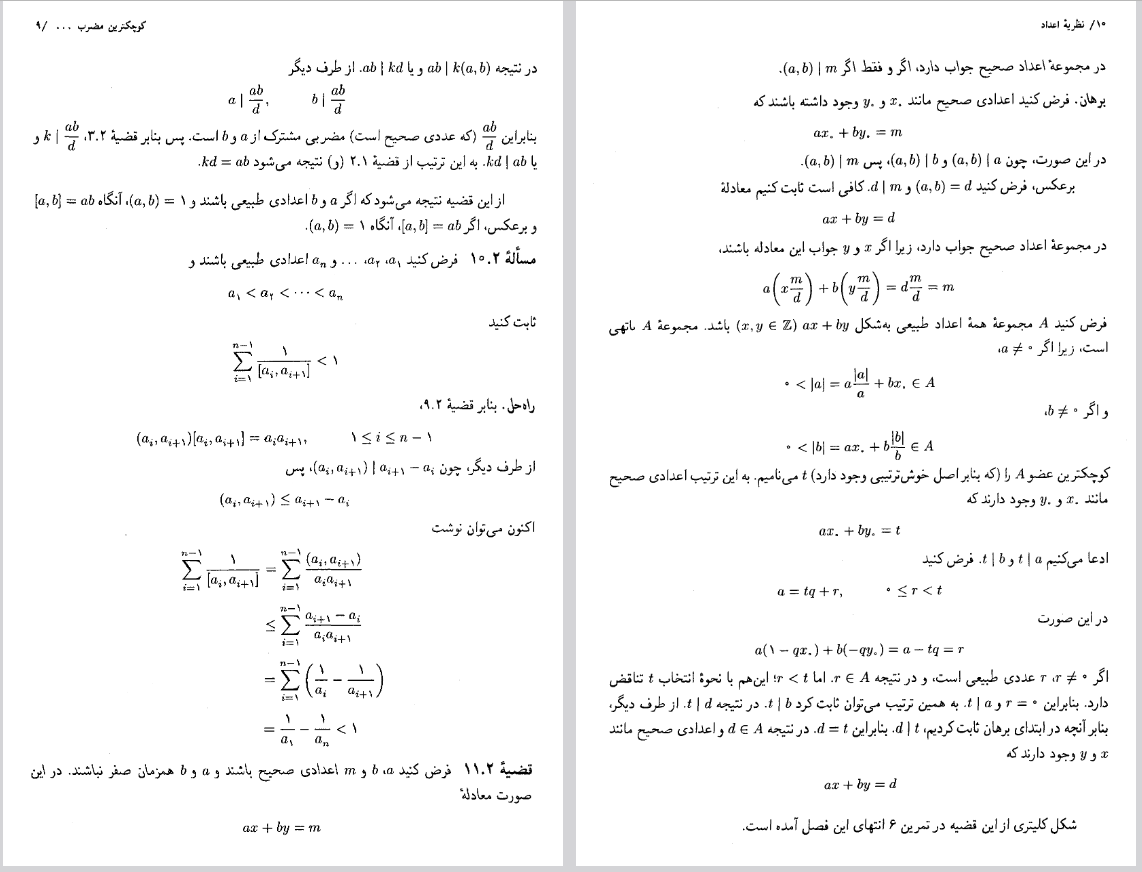 کوچکترین مضرب ... /۹
در نتیجه ab | k(a, b) و یا ab | kd. از طرف دیگر
a | ab/d, b | ab/d
بنابراین ab/d (که عددی صحیح است) مضربی مشترک از a و b است. پس بنابر قضیهٔ ۳.۲، k | ab/d و
یا kd | ab. به این ترتیب از قضیهٔ ۲.۱ (و) نتیجه می‌شود kd = ab.
از این قضیه نتیجه می‌شود که اگر a و b اعدادی طبیعی باشند و (a, b) = ۱، آنگاه [a, b] = ab
و برعکس، اگر [a, b] = ab، آنگاه (a, b) = ۱.
مسألهٔ ۱۰.۲ فرض کنید a₁، a₂، ... و aₙ اعدادی طبیعی باشند و
a₁ < a₂ < ··· < aₙ
ثابت کنید
∑_{i=۱}^{n−۱} ۱/[a_i, a_{i+۱}] < ۱
راه‌حل. بنابر قضیهٔ ۹.۲،
(a_i, a_{i+۱})[a_i, a_{i+۱}] = a_i a_{i+۱}, ۱ ≤ i ≤ n − ۱
از طرف دیگر، چون (a_i, a_{i+۱}) | a_{i+۱} − a_i، پس
(a_i, a_{i+۱}) ≤ a_{i+۱} − a_i
اکنون می‌توان نوشت
∑_{i=۱}^{n−۱} ۱/[a_i, a_{i+۱}] = ∑_{i=۱}^{n−۱} (a_i, a_{i+۱})/(a_i a_{i+۱})
≤ ∑_{i=۱}^{n−۱} (a_{i+۱} − a_i)/(a_i a_{i+۱})
= ∑_{i=۱}^{n−۱} (۱/a_i − ۱/a_{i+۱})
= ۱/a₁ − ۱/aₙ < ۱
قضیهٔ ۱۱.۲ فرض کنید a، b و m اعدادی صحیح باشند و a و b همزمان صفر نباشند. در این
صورت معادلهٔ
ax + by = m
۱۰/ نظریهٔ اعداد
در مجموعهٔ اعداد صحیح جواب دارد، اگر و فقط اگر (a, b) | m.
برهان. فرض کنید اعدادی صحیح مانند x₀ و y₀ وجود داشته باشند که
ax₀ + by₀ = m
در این صورت، چون (a, b) | a و (a, b) | b، پس (a, b) | m.
برعکس، فرض کنید (a, b) = d و d | m. کافی است ثابت کنیم معادلهٔ
ax + by = d
در مجموعهٔ اعداد صحیح جواب دارد، زیرا اگر x و y جواب این معادله باشند،
a(x m/d) + b(y m/d) = d m/d = m
فرض کنید A مجموعهٔ همهٔ اعداد طبیعی به‌شکل ax + by (x, y ∈ ℤ) باشد. مجموعهٔ A ناتهی
است، زیرا اگر a ≠ ۰،
۰ < |a| = a |a|/a + bx₀ ∈ A
و اگر b ≠ ۰،
۰ < |b| = ax₀ + b |b|/b ∈ A
کوچکترین عضو A را (که بنابر اصل خوش‌ترتیبی وجود دارد) t می‌نامیم. به این ترتیب اعدادی صحیح
مانند x₀ و y₀ وجود دارند که
ax₀ + by₀ = t
ادعا می‌کنیم t | a و t | b. فرض کنید
a = tq + r, ۰ ≤ r < t
در این صورت
a(۱ − qx₀) + b(−qy₀) = a − tq = r
اگر r ≠ ۰، r عددی طبیعی است، و در نتیجه r ∈ A. اما r < t؛ این‌هم با نحوهٔ انتخاب t تناقض
دارد. بنابراین r = ۰ و t | a. به همین ترتیب می‌توان ثابت کرد t | b. در نتیجه t | d. از طرف دیگر،
بنابر آنچه در ابتدای برهان ثابت کردیم، d | t. بنابراین d = t. در نتیجه d ∈ A و اعدادی صحیح مانند
x و y وجود دارند که
ax + by = d
شکل کلیتری از این قضیه در تمرین ۶ انتهای این فصل آمده است.